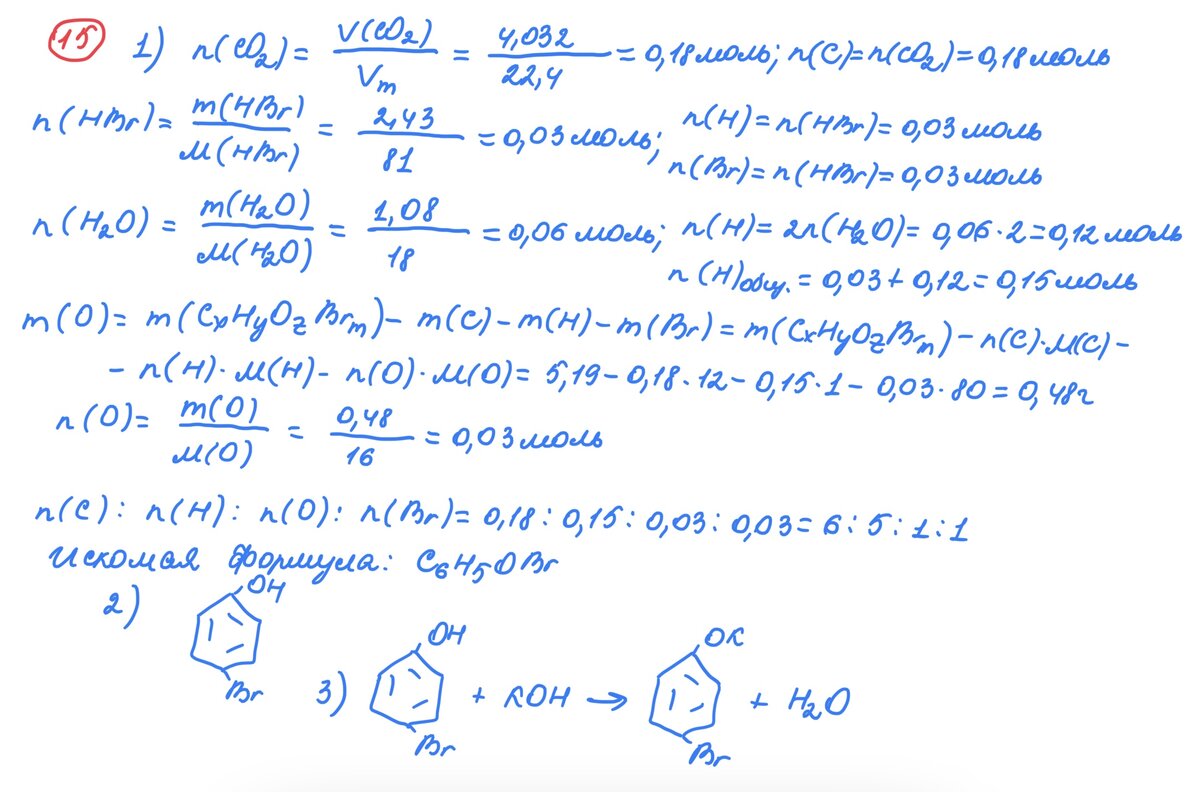 15 1) n(CO₂) = V(CO₂)/Vm = 4,032/22,4 = 0,18 моль; n(C) = n(CO₂) = 0,18 моль
n(HBr) = m(HBr)/M(HBr) = 2,43/81 = 0,03 моль; n(H) = n(HBr) = 0,03 моль
n(Br) = n(HBr) = 0,03 моль
n(H₂O) = m(H₂O)/M(H₂O) = 1,08/18 = 0,06 моль; n(H) = 2n(H₂O) = 0,06·2 = 0,12 моль
n(H)общ. = 0,03 + 0,12 = 0,15 моль
m(O) = m(CxHyOzBrm) – m(C) – m(H) – m(Br) = m(CxHyOzBrm) – n(C)·M(C) –
– n(H)·M(H) – n(O)·M(O) = 5,19 – 0,18·12 – 0,15·1 – 0,03·80 = 0,48г
n(O) = m(O)/M(O) = 0,48/16 = 0,03 моль
n(C) : n(H) : n(O) : n(Br) = 0,18 : 0,15 : 0,03 : 0,03 = 6 : 5 : 1 : 1
Искомая формула: C₆H₅OBr
2) OH
Br
3) OH + KOH → OK + H₂O
Br Br